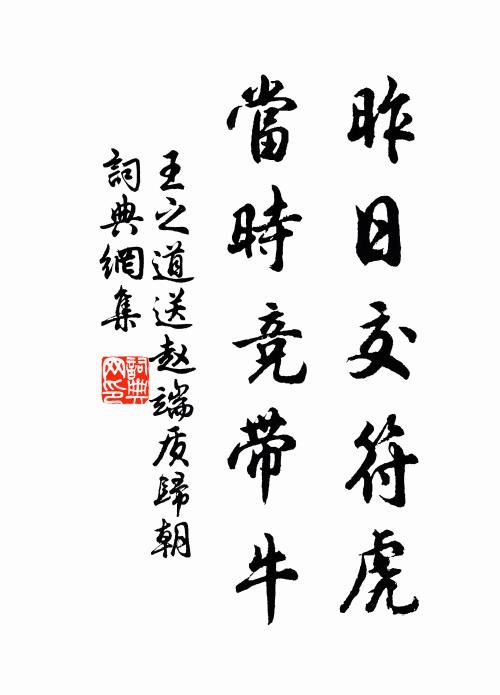 昨日交符虎
當時竞带牛
王之道送赵端质歸朝
詞典網集
詞典網印